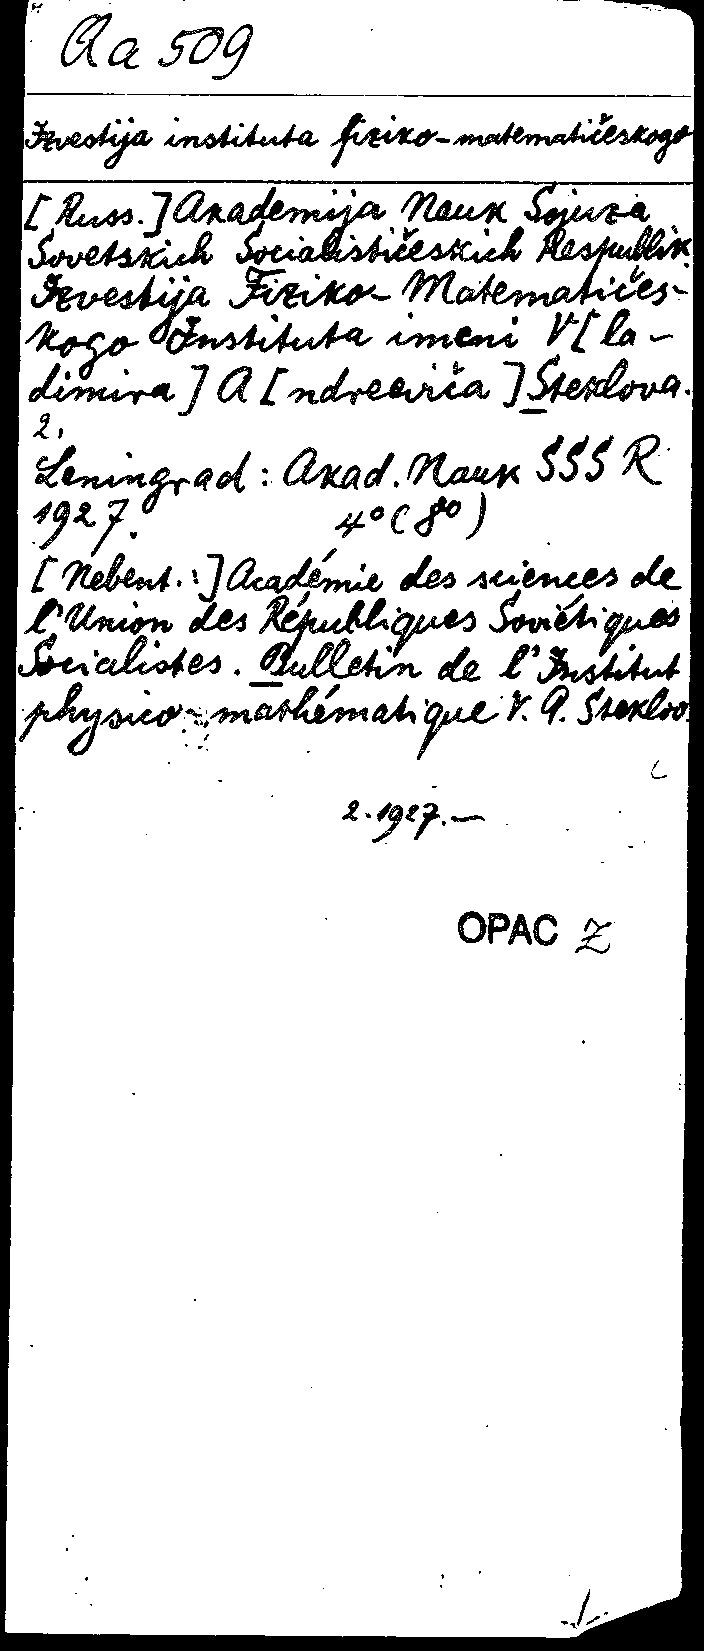 Aa 509
Izvestija instituta fiziko-matematičeskogo
[Russ.] Akademija Nauk Sojuza
Sovetskich Socialističeskich Respublik.
Izvestija Fiziko-Matematičes-
kogo Instituta imeni V[la-
dimira] A[ndreeviča] Steklova.
2.
Leningrad: Akad. Nauk SSSR
1927. 4° (8°)
[Nebent.:] Académie des sciences de
l'Union des Républiques Soviétiques
Socialistes. Bulletin de l'Institut
physico-mathématique V. A. Stekloo
2.1927.—
OPAC Z